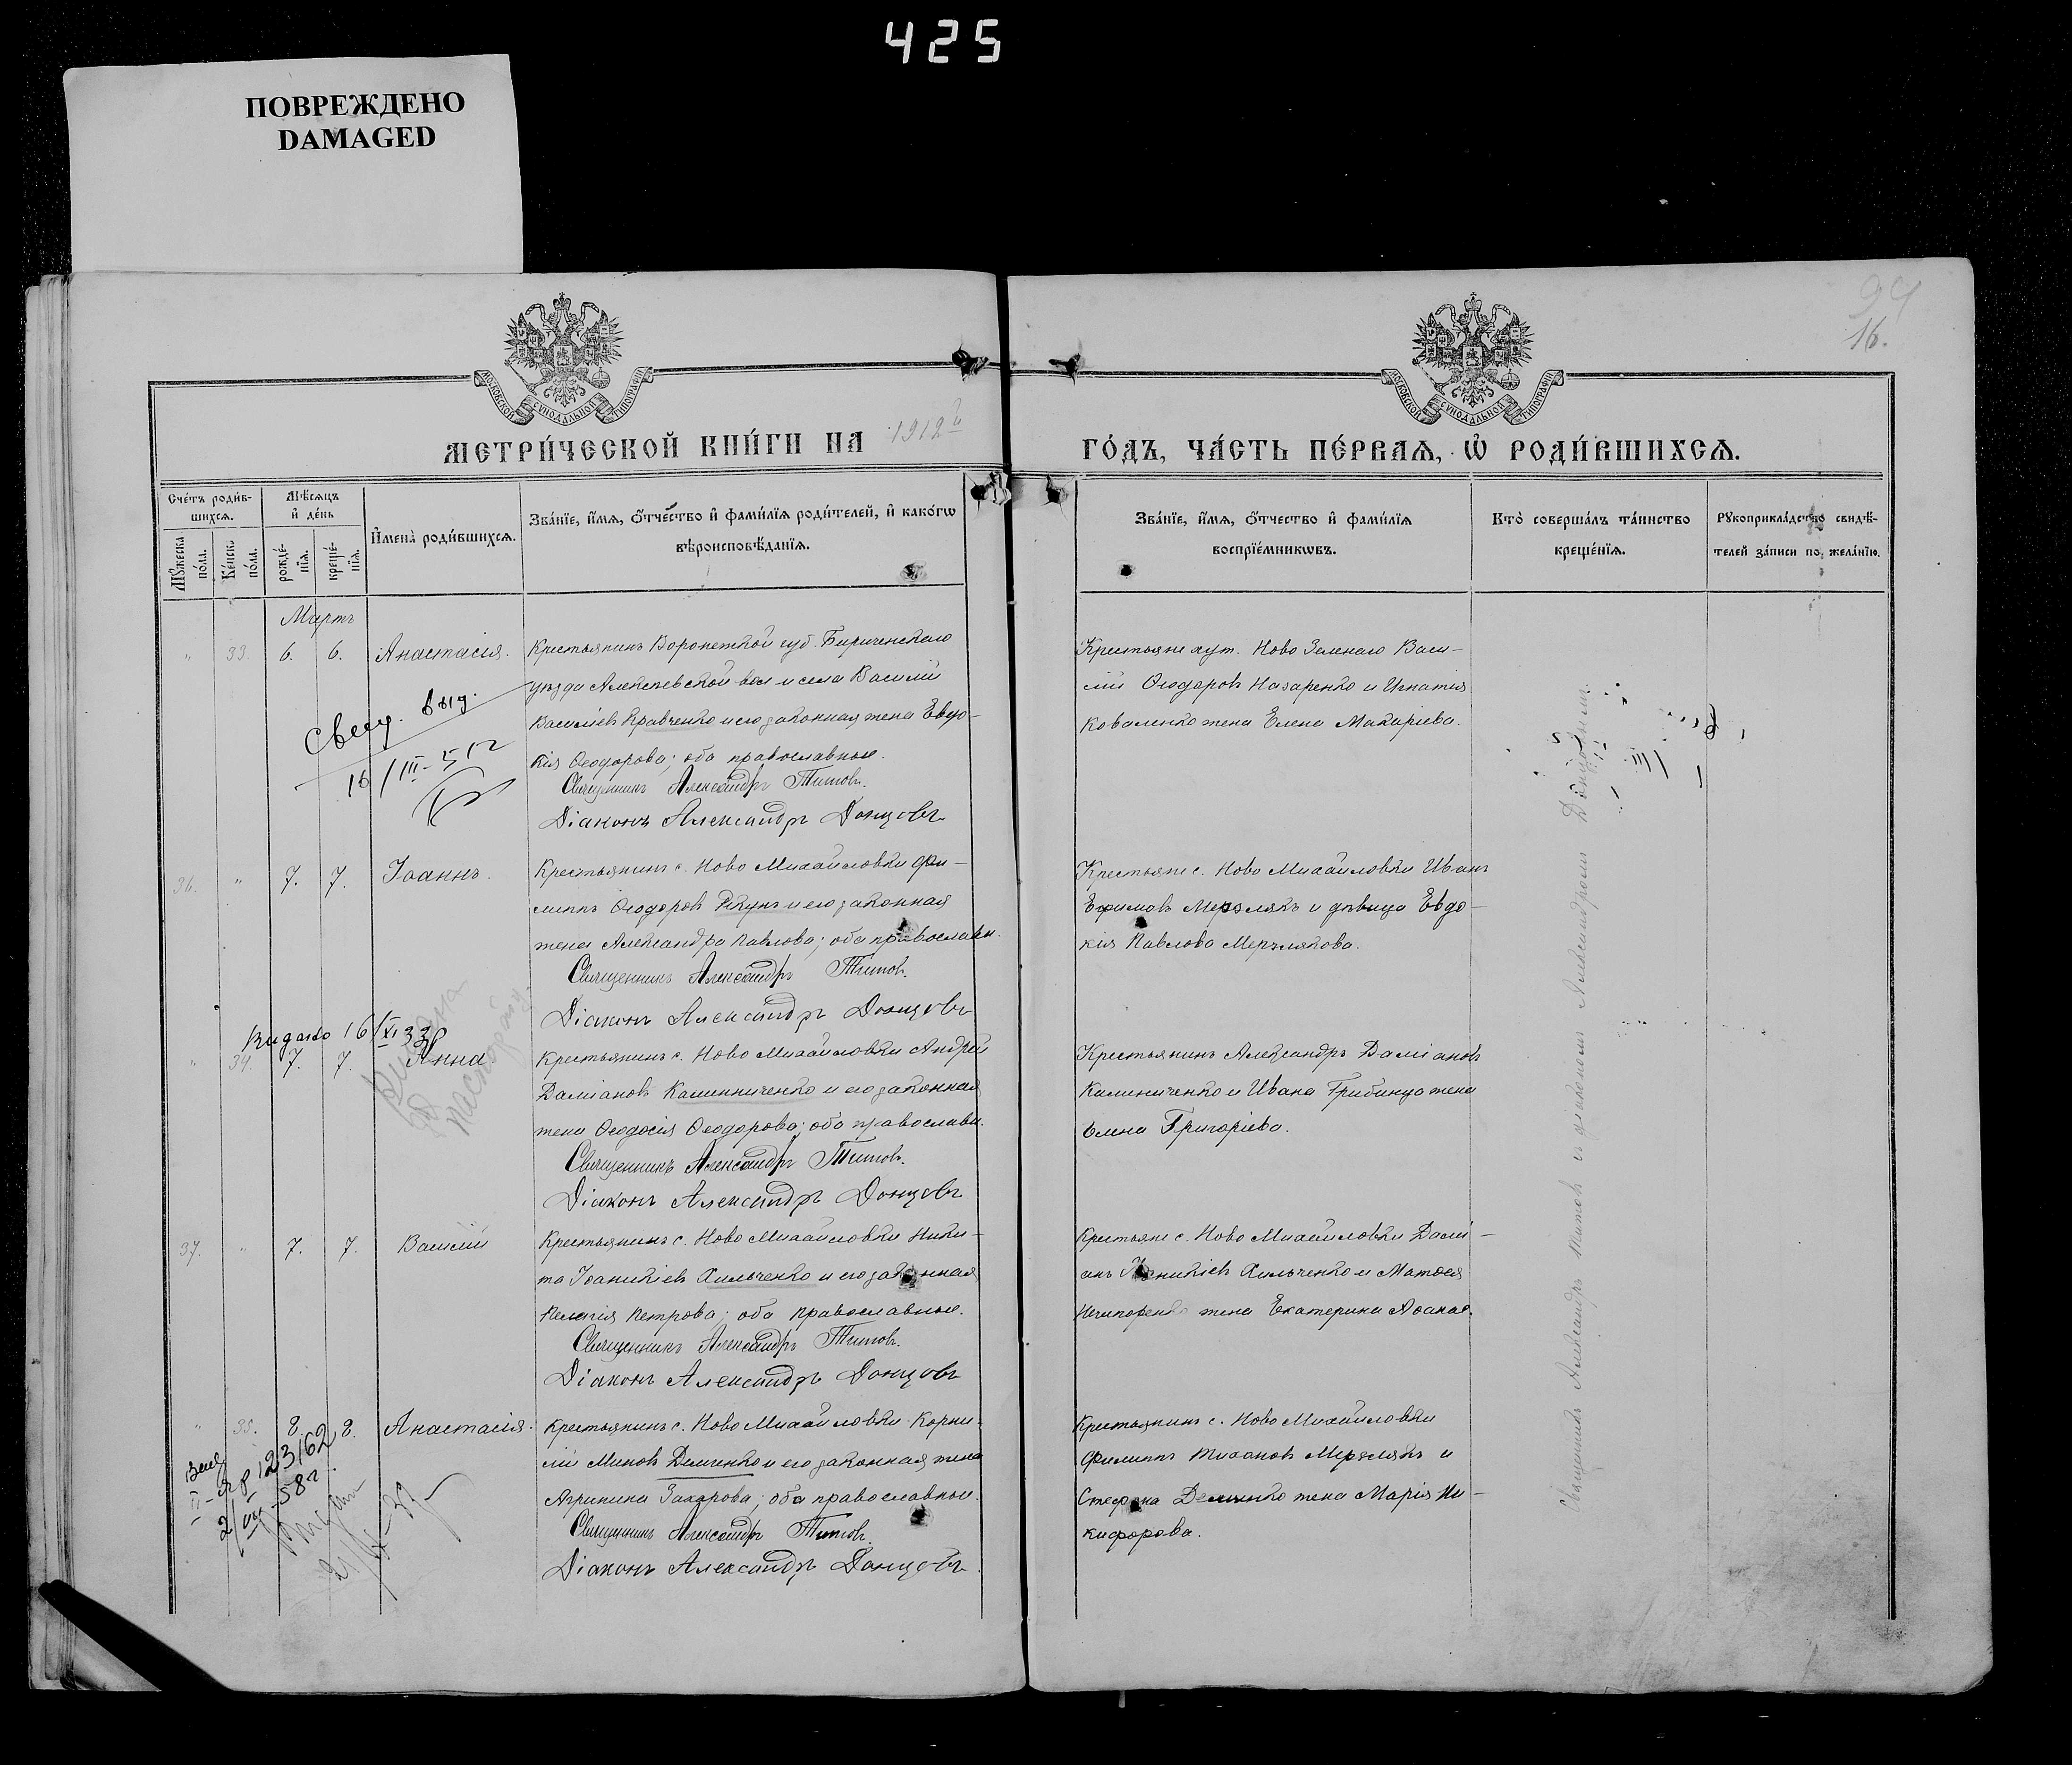 425
ПОВРЕЖДЕНО
DAMAGED
16.
МОСКОВСКОЙ СУНОДАЛЬНОЙ ТИПОГРАФІИ
МОСКОВСКОЙ СУНОДАЛЬНОЙ ТИПОГРАФІИ
МЕТРИ́ЧЕСКОЙ КНИ́ГИ НА 1912й ГО́ДЪ, ЧА́СТЬ ПЕ́РВАѦ, Ѡ҆ РОДИ́ВШИХСѦ.
Сче́тъ роди́в-
шихсѧ.
Мꙋ́жеска по́ла.
Же́нска по́ла.
Мѣ́сѧцъ
и҆ де́нь
рожде́-
нїѧ.
креще́-
нїѧ.
И҆мена̀ роди́вшихсѧ.
Зва́нїе, и҆́мѧ, ѻ҆́тчество и҆ фами́лїѧ роди́телей, и҆ како́гѡ
вѣроисповѣ́данїѧ.
Зва́нїе, и҆́мѧ, ѻ҆́тчество и҆ фами́лїѧ
воспрїе́мникѡвъ.
Кто̀ соверша́лъ та́инство
креще́нїѧ.
Рꙋкоприкла́дство свидѣ́-
телей за́писи по жела́нїю.
Мартъ
" 33. 6. 6. Анастасія.
Крестьянинъ Воронежской губ. Бирюченскаго
уѣзда Алексѣевской вол и села Василій
Васильевъ Кравченко и его законная жена Евдо-
кія Ѳеодорова; оба православные.
Священникъ Александръ Титовъ.
Діаконъ Александръ Донцовъ
Крестьяне хут. Ново Зеленаго Васи-
лій Ѳеодоровъ Назаренко и Игнатія
Коваленко жена Елена Макаріева.
Свид. выд.
36. " 7. 7. Іоаннъ.
Крестьянинъ с. Ново Михайловки Фи-
липпъ Ѳеодоровъ и его законная
жена Александра Павлова; оба православн.
Священникъ Александръ Титовъ.
Діаконъ Александръ Донцовъ
Крестьяне с. Ново Михайловки Иванъ
Ефимовъ Мерзлякъ и дѣвица Евдо-
кія Павлова Мерзлякова.
16/XI 33
" 34. 7. 7. Анна
Крестьянинъ с. Ново Михайловки Андрей
Даміановъ Калиниченко и его законная
жена Ѳеодосія Ѳеодорова; оба православн.
Священникъ Александръ Титовъ.
Діаконъ Александръ Донцовъ
Крестьянинъ Александръ Даміановъ
Калиниченко и Ивана Грибинца жена
Елена Григоріева.
37. " 7. 7. Василій
Крестьянинъ с. Ново Михайловки Ники-
та Іоаникіевъ Хильченко и его законная
Пелагія Петрова; оба православные.
Священникъ Александръ Титовъ.
Діаконъ Александръ Донцовъ
Крестьяне с. Ново Михайловки Дамі-
анъ Іоаникіевъ Хильченко и Матѳея
Нечипоренко жена Екатерина Аѳанас.
" 35. 8. 8. Анастасія.
Крестьянинъ с. Ново Михайловки Корни-
лій Миновъ Демченко и его законная жена
Агрипина Захарова; оба православные.
Священникъ Александръ Титовъ.
Діаконъ Александръ Донцовъ.
Крестьянинъ с. Ново Михайловки
Филиппъ Тихановъ Мерзлякъ и
Стефана Демченко жена Марія Ни-
кифорова.
Священникъ Александръ Титовъ съ діакономъ Александромъ Донцовымъ.